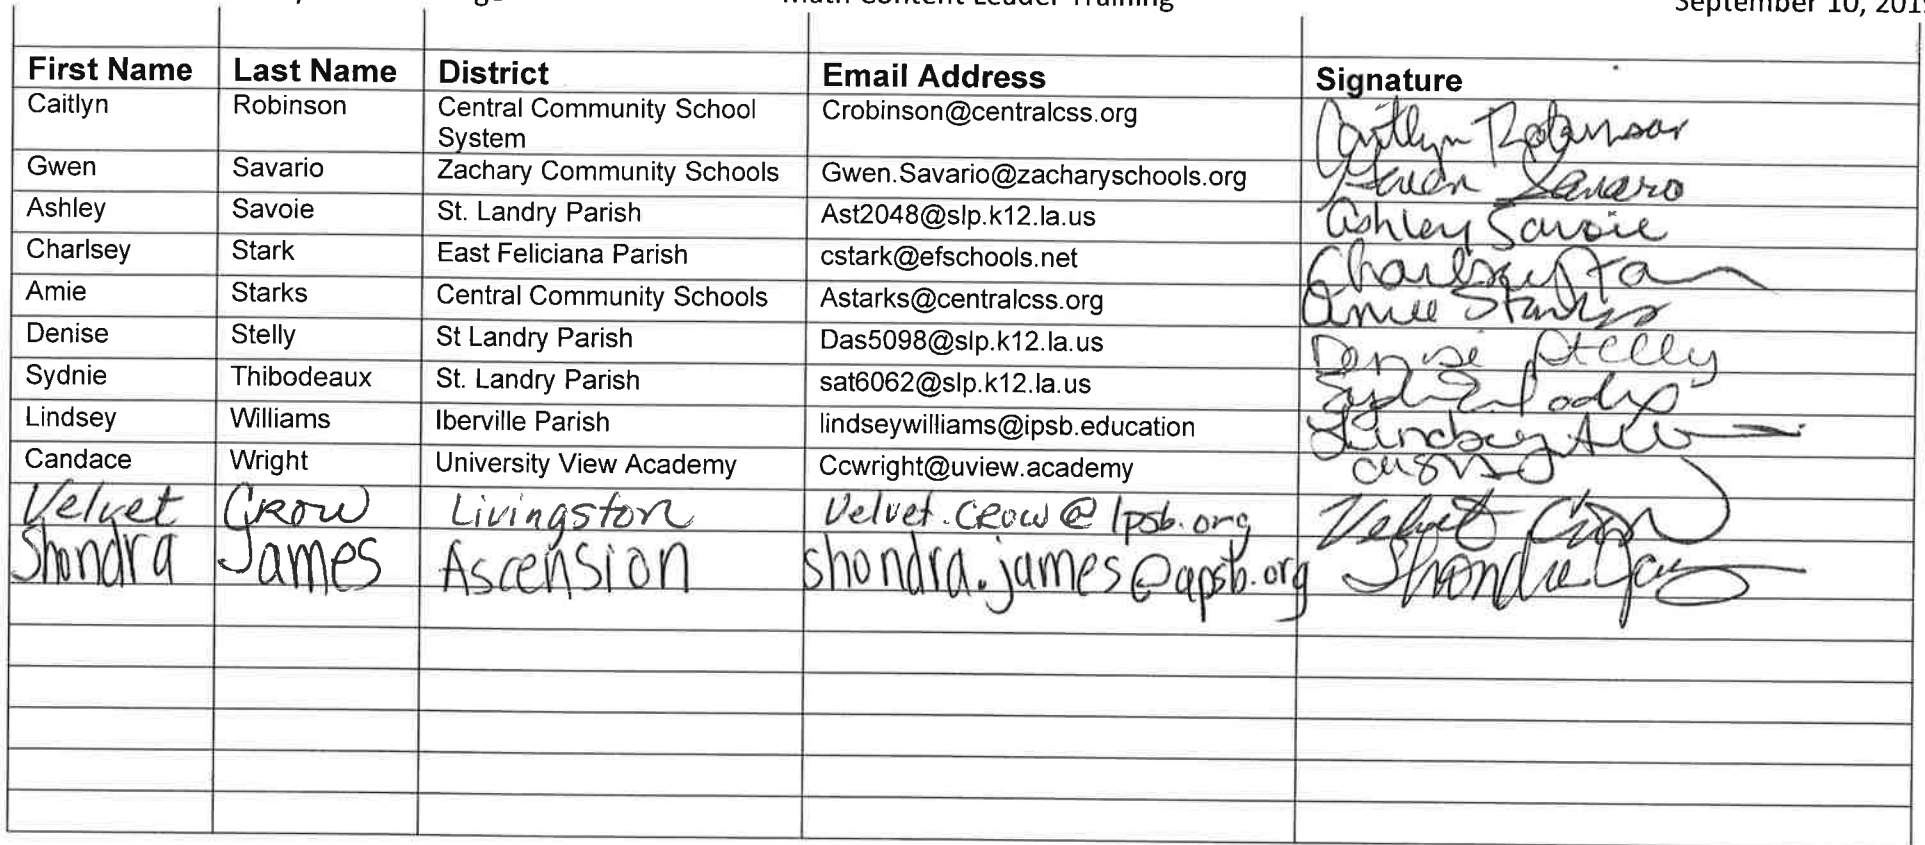 Math Content Leader Training September 10, 201
First Name Last Name District Email Address Signature
Caitlyn Robinson Central Community School Crobinson@centralcss.org Caitlyn Robinson
System
Gwen Savario Zachary Community Schools Gwen.Savario@zacharyschools.org Gwen Savario
Ashley Savoie St. Landry Parish Ast2048@slp.k12.la.us Ashley Savoie
Charlsey Stark East Feliciana Parish cstark@efschools.net Charlsey
Amie Starks Central Community Schools Astarks@centralcss.org Amie Starks
Denise Stelly St Landry Parish Das5098@slp.k12.la.us Denise Stelly
Sydnie Thibodeaux St. Landry Parish sat6062@slp.k12.la.us
Lindsey Williams Iberville Parish lindseywilliams@ipsb.education Lindsey
Candace Wright University View Academy Ccwright@uview.academy
Velvet Crow Livingston Velvet.Crow@lpsb.org Velvet Crow
Shondra James Ascension shondra.james@apsb.org Shondra James